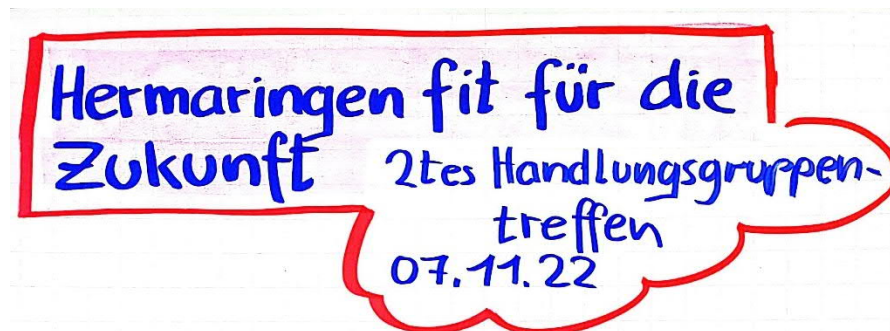 Hermaringen fit für die
Zukunft
2tes Handlungsgruppen-
treffen
07.11.22